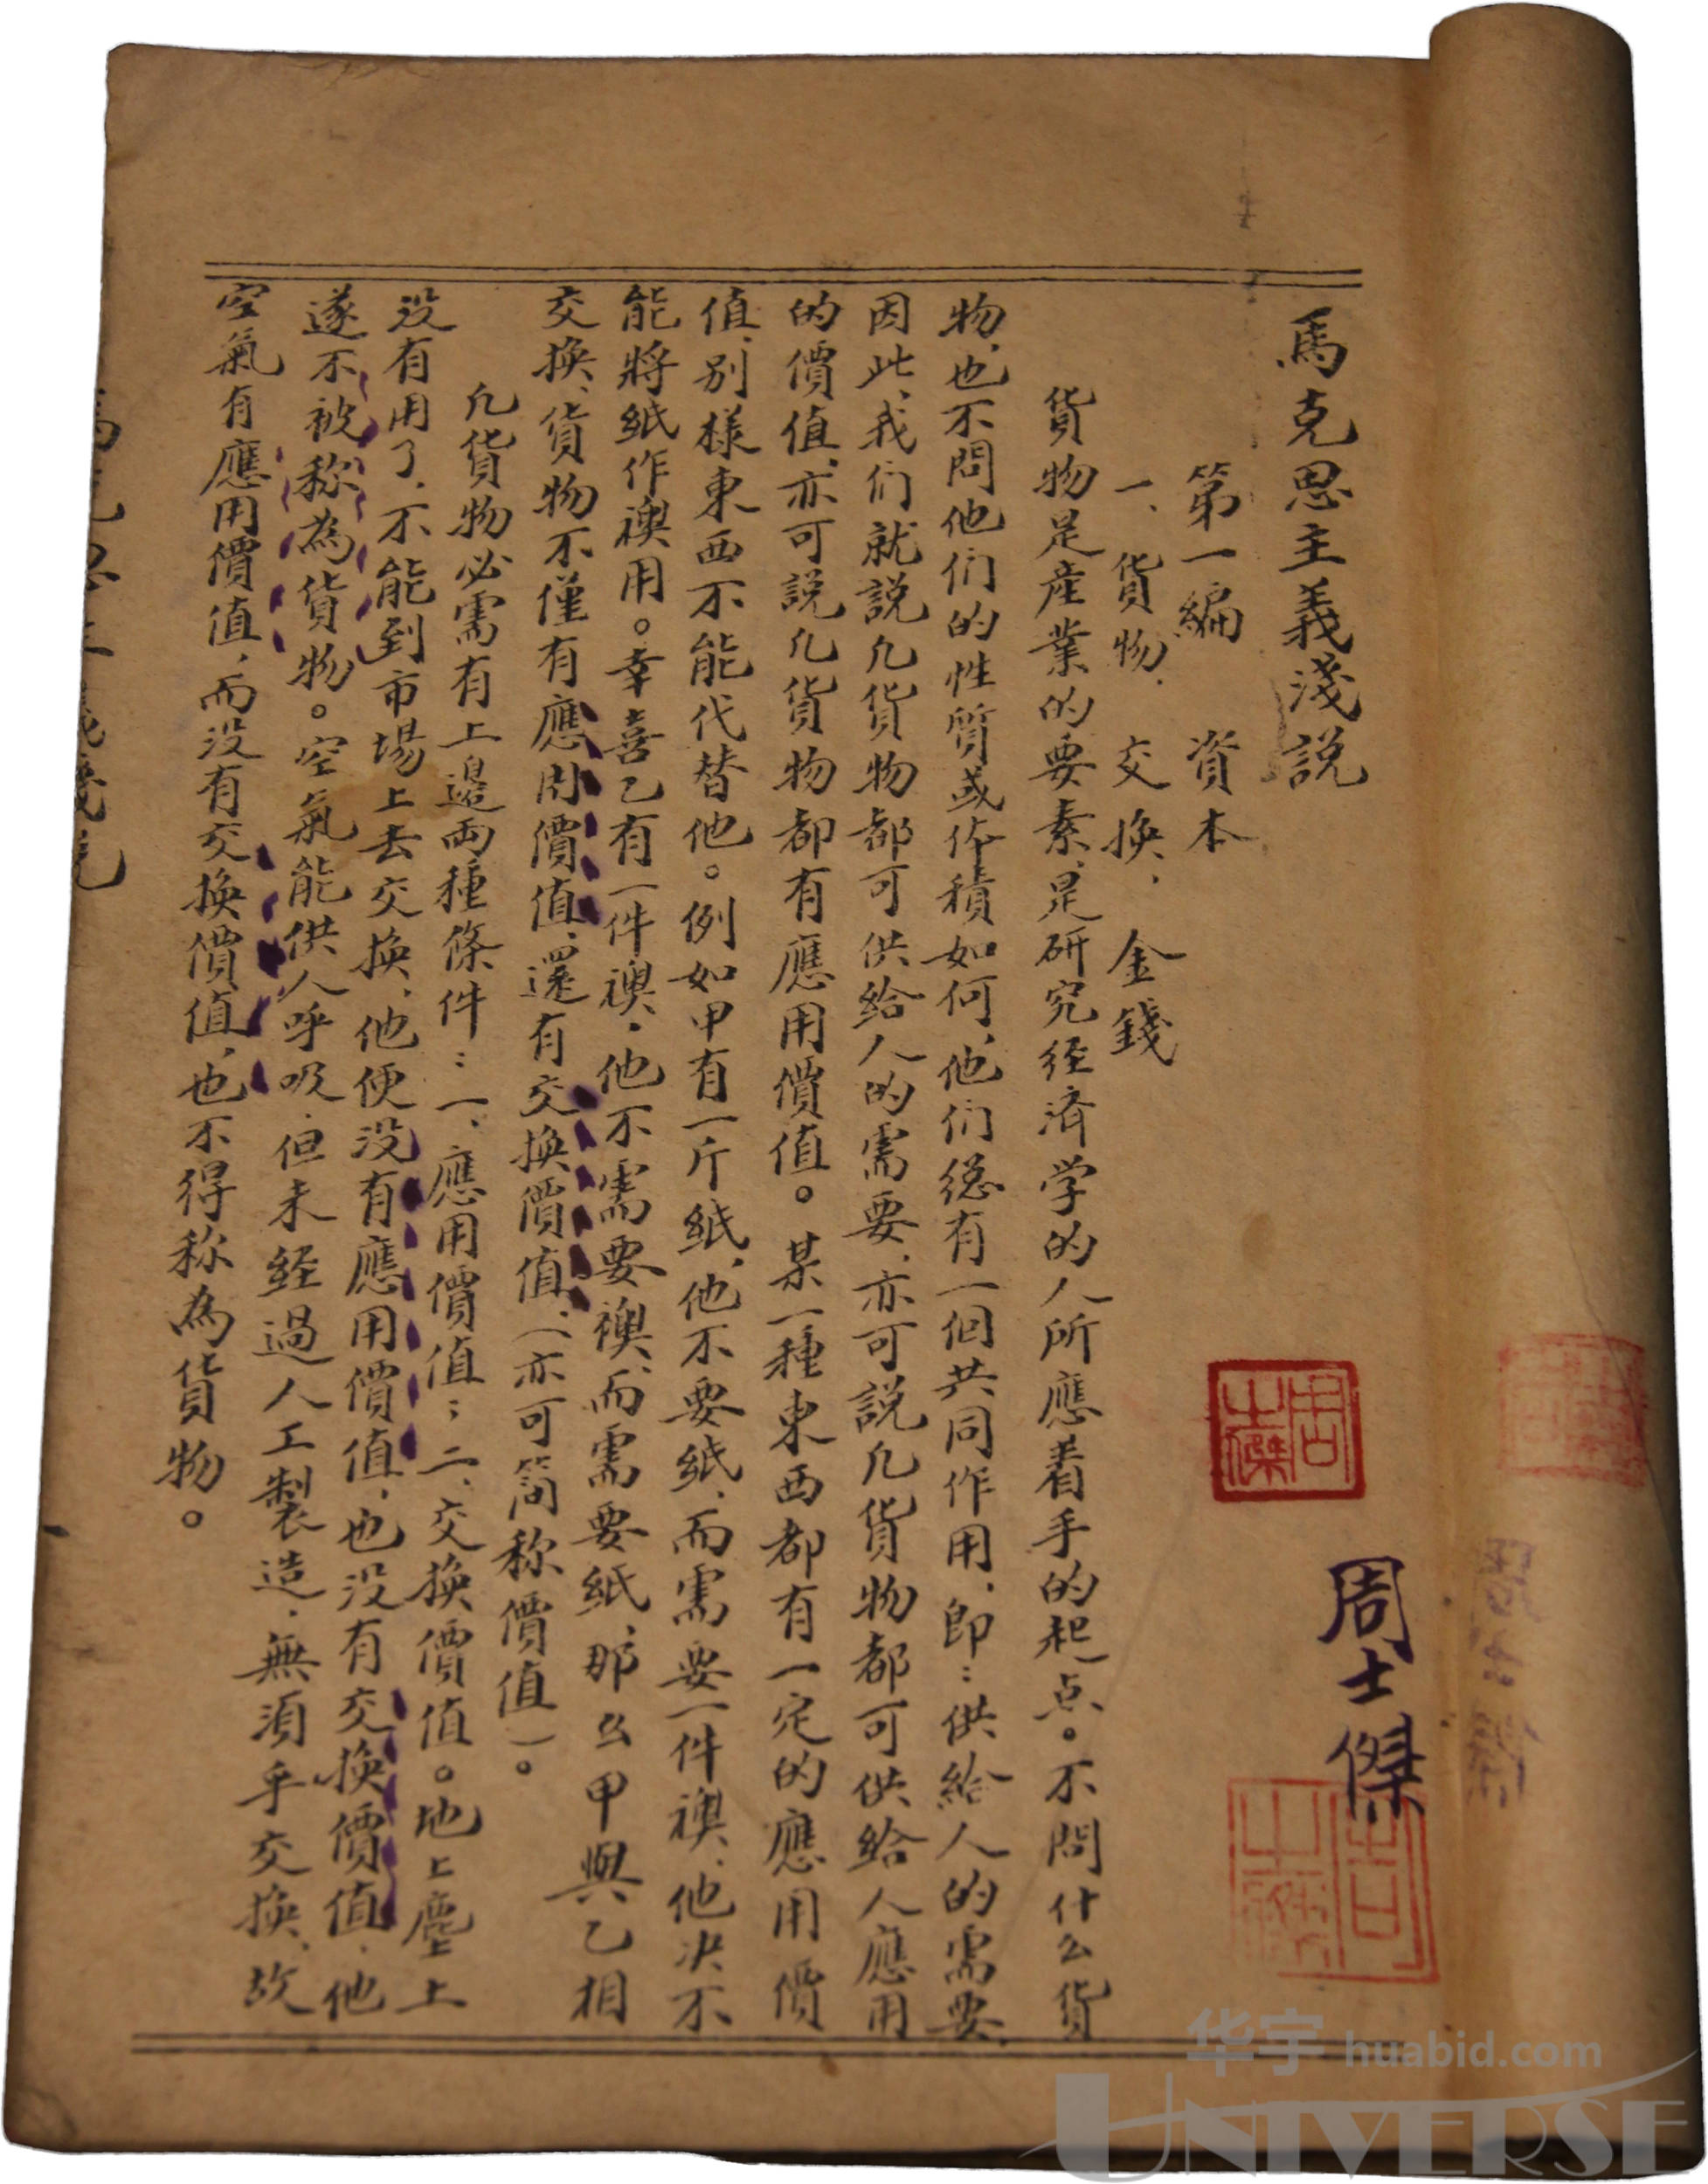 馬克思主義淺説
第一編　資本
一、貨物、交換、金錢
貨物是産業的要素，是研究经済学的人所應着手的起点。不問什么貨
物，也不問他们的性質或体積如何，他们総有一個共同作用，即：供給人的需要，
因此，我们就説凡貨物都可供給人的需要，亦可説凡貨物都可供給人應用
的價值，亦可説凡貨物都有應用價值。某一種東西都有一定的應用價
值，別樣東西不能代替他。例如甲有一斤紙，他不要紙，而需要一件襖，他決不
能將紙作襖用。幸喜乙有一件襖，他不需要襖，而需要紙，那么甲與乙相
交換，貨物不僅有應用價值，還有交換價值，（亦可简称價值）。
凡貨物必需有上邉両種條件：一、應用價值；二、交換價值。地上塵土
没有用了，不能到市場上去交換，他便没有應用價值，也没有交換價值，他
遂不被称為貨物。空氣能供人呼吸，但未経過人工製造，無須乎交換，故
空氣有應用價值，而没有交換價值，也不得称為貨物。
周士傑
周士傑
周士傑
馬克思主義淺説
华宇 huabid.com
UNIVERSE